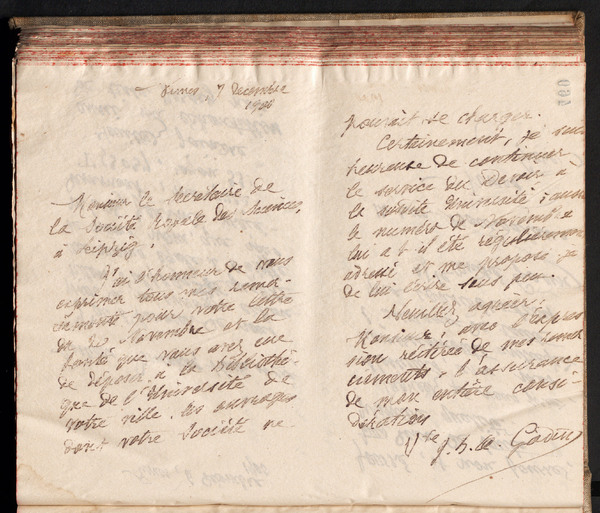 7 Décembre
1900
Monsieur le Secrétaire de
la Société Royale des Sciences,
à Leipzig.
J'ai l'honneur de vous
exprimer tous mes remer-
ciements pour votre lettre
du de Novembre et la
bonté que vous avez eue
de déposer à la Bibliothè-
que de l'Université de
votre ville, les ouvrages
dont votre Société ne
pourait se charger.
Certainement, je suis
heureuse de continuer
le service du Devoir à
la susdite Université; aussi
le numéro de Novembre
lui a-t-il été régulièrement
adressé et me propose je
de lui écrire sous peu.
Veuillez agréer,
Monsieur, avec l'expres
sion réitérée de mes remer
ciements, l'assurance
de mon entière consi-
dération
Vve J. B. A. Godin